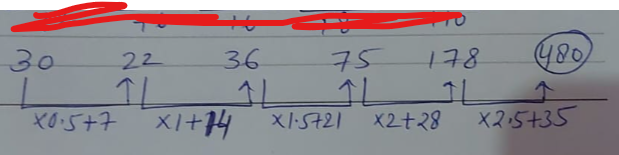 30 22 36 75 178 480
×0.5+7 ×1+14 ×1.5+21 ×2+28 ×2.5+35